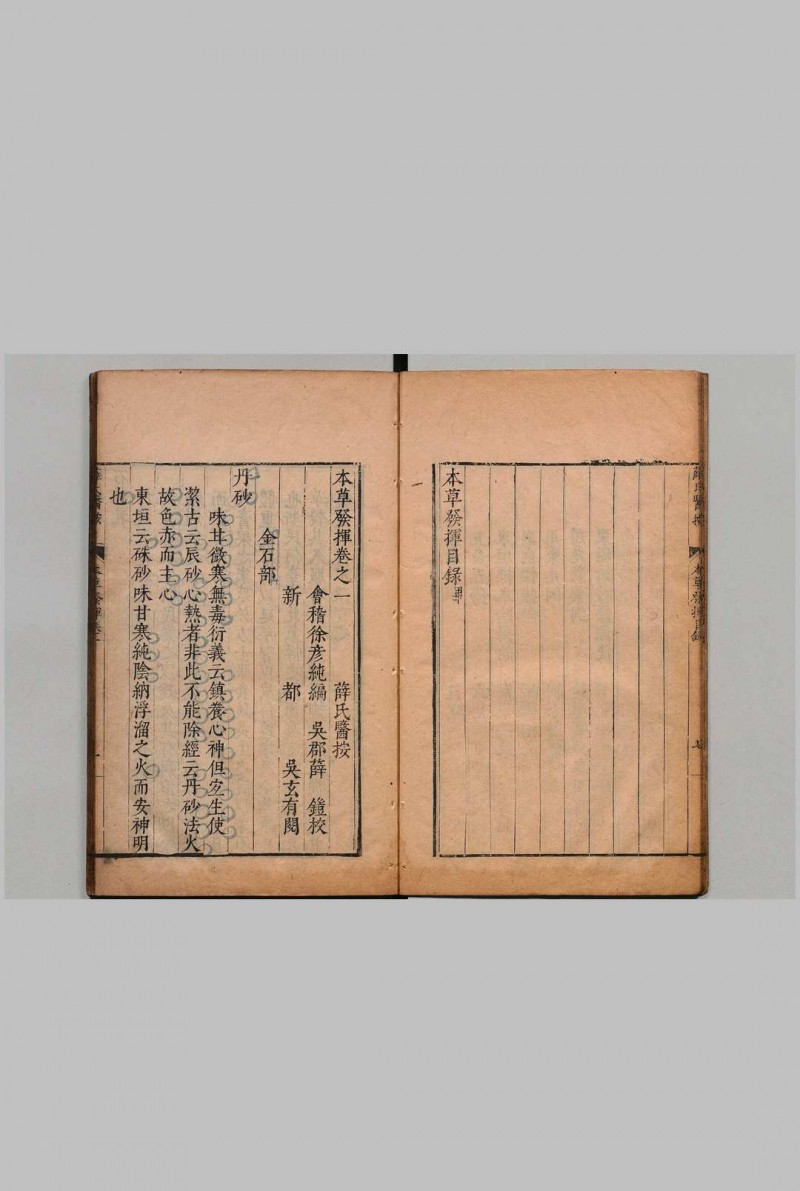 本草發揮目錄畢
本草發揮卷之一　薛氏醫按
會稽徐彥純編　吳郡薛　鎧校
新　都　吳玄有閱
金石部
丹砂
味甘微寒無毒衍義云鎮養心神但宜生使
潔古云辰砂心熱者非此不能除經云丹砂法火
故色赤而主心
東垣云硃砂味甘寒純陰納浮溜之火而安神明
也